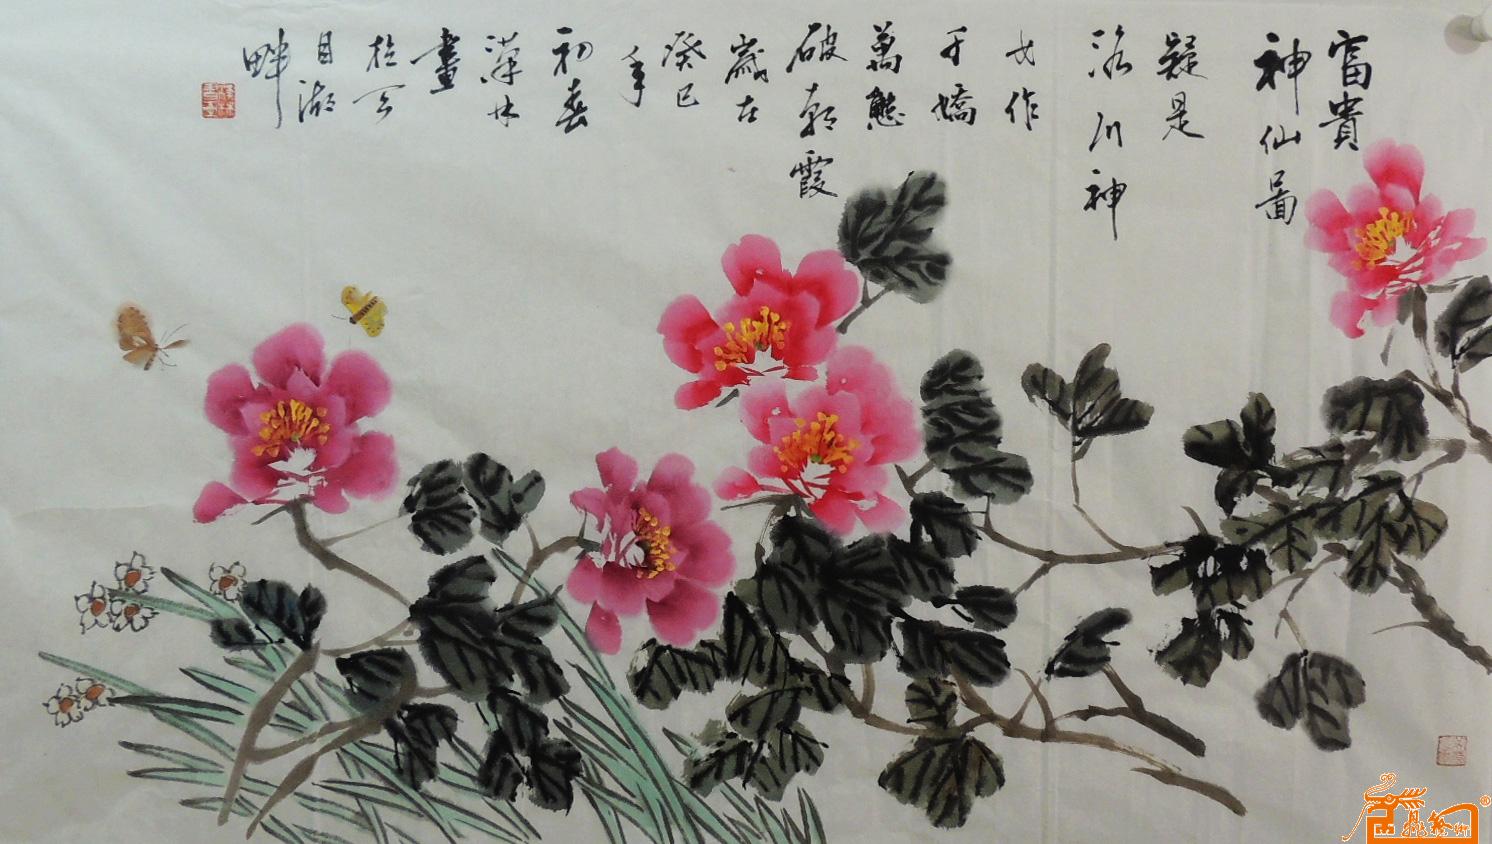 富貴
神仙圖
疑是
洛川神
女作
千嬌
萬態
破朝霞
歲在
癸巳
年
初春
林
畫
於天
目湖
畔